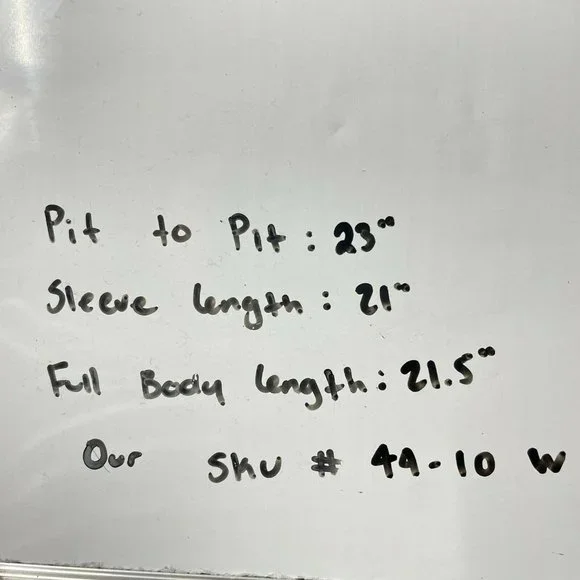 Pit to Pit: 23"
Sleeve length: 21"
Full Body length: 21.5"
Our SKU # 49-10 W